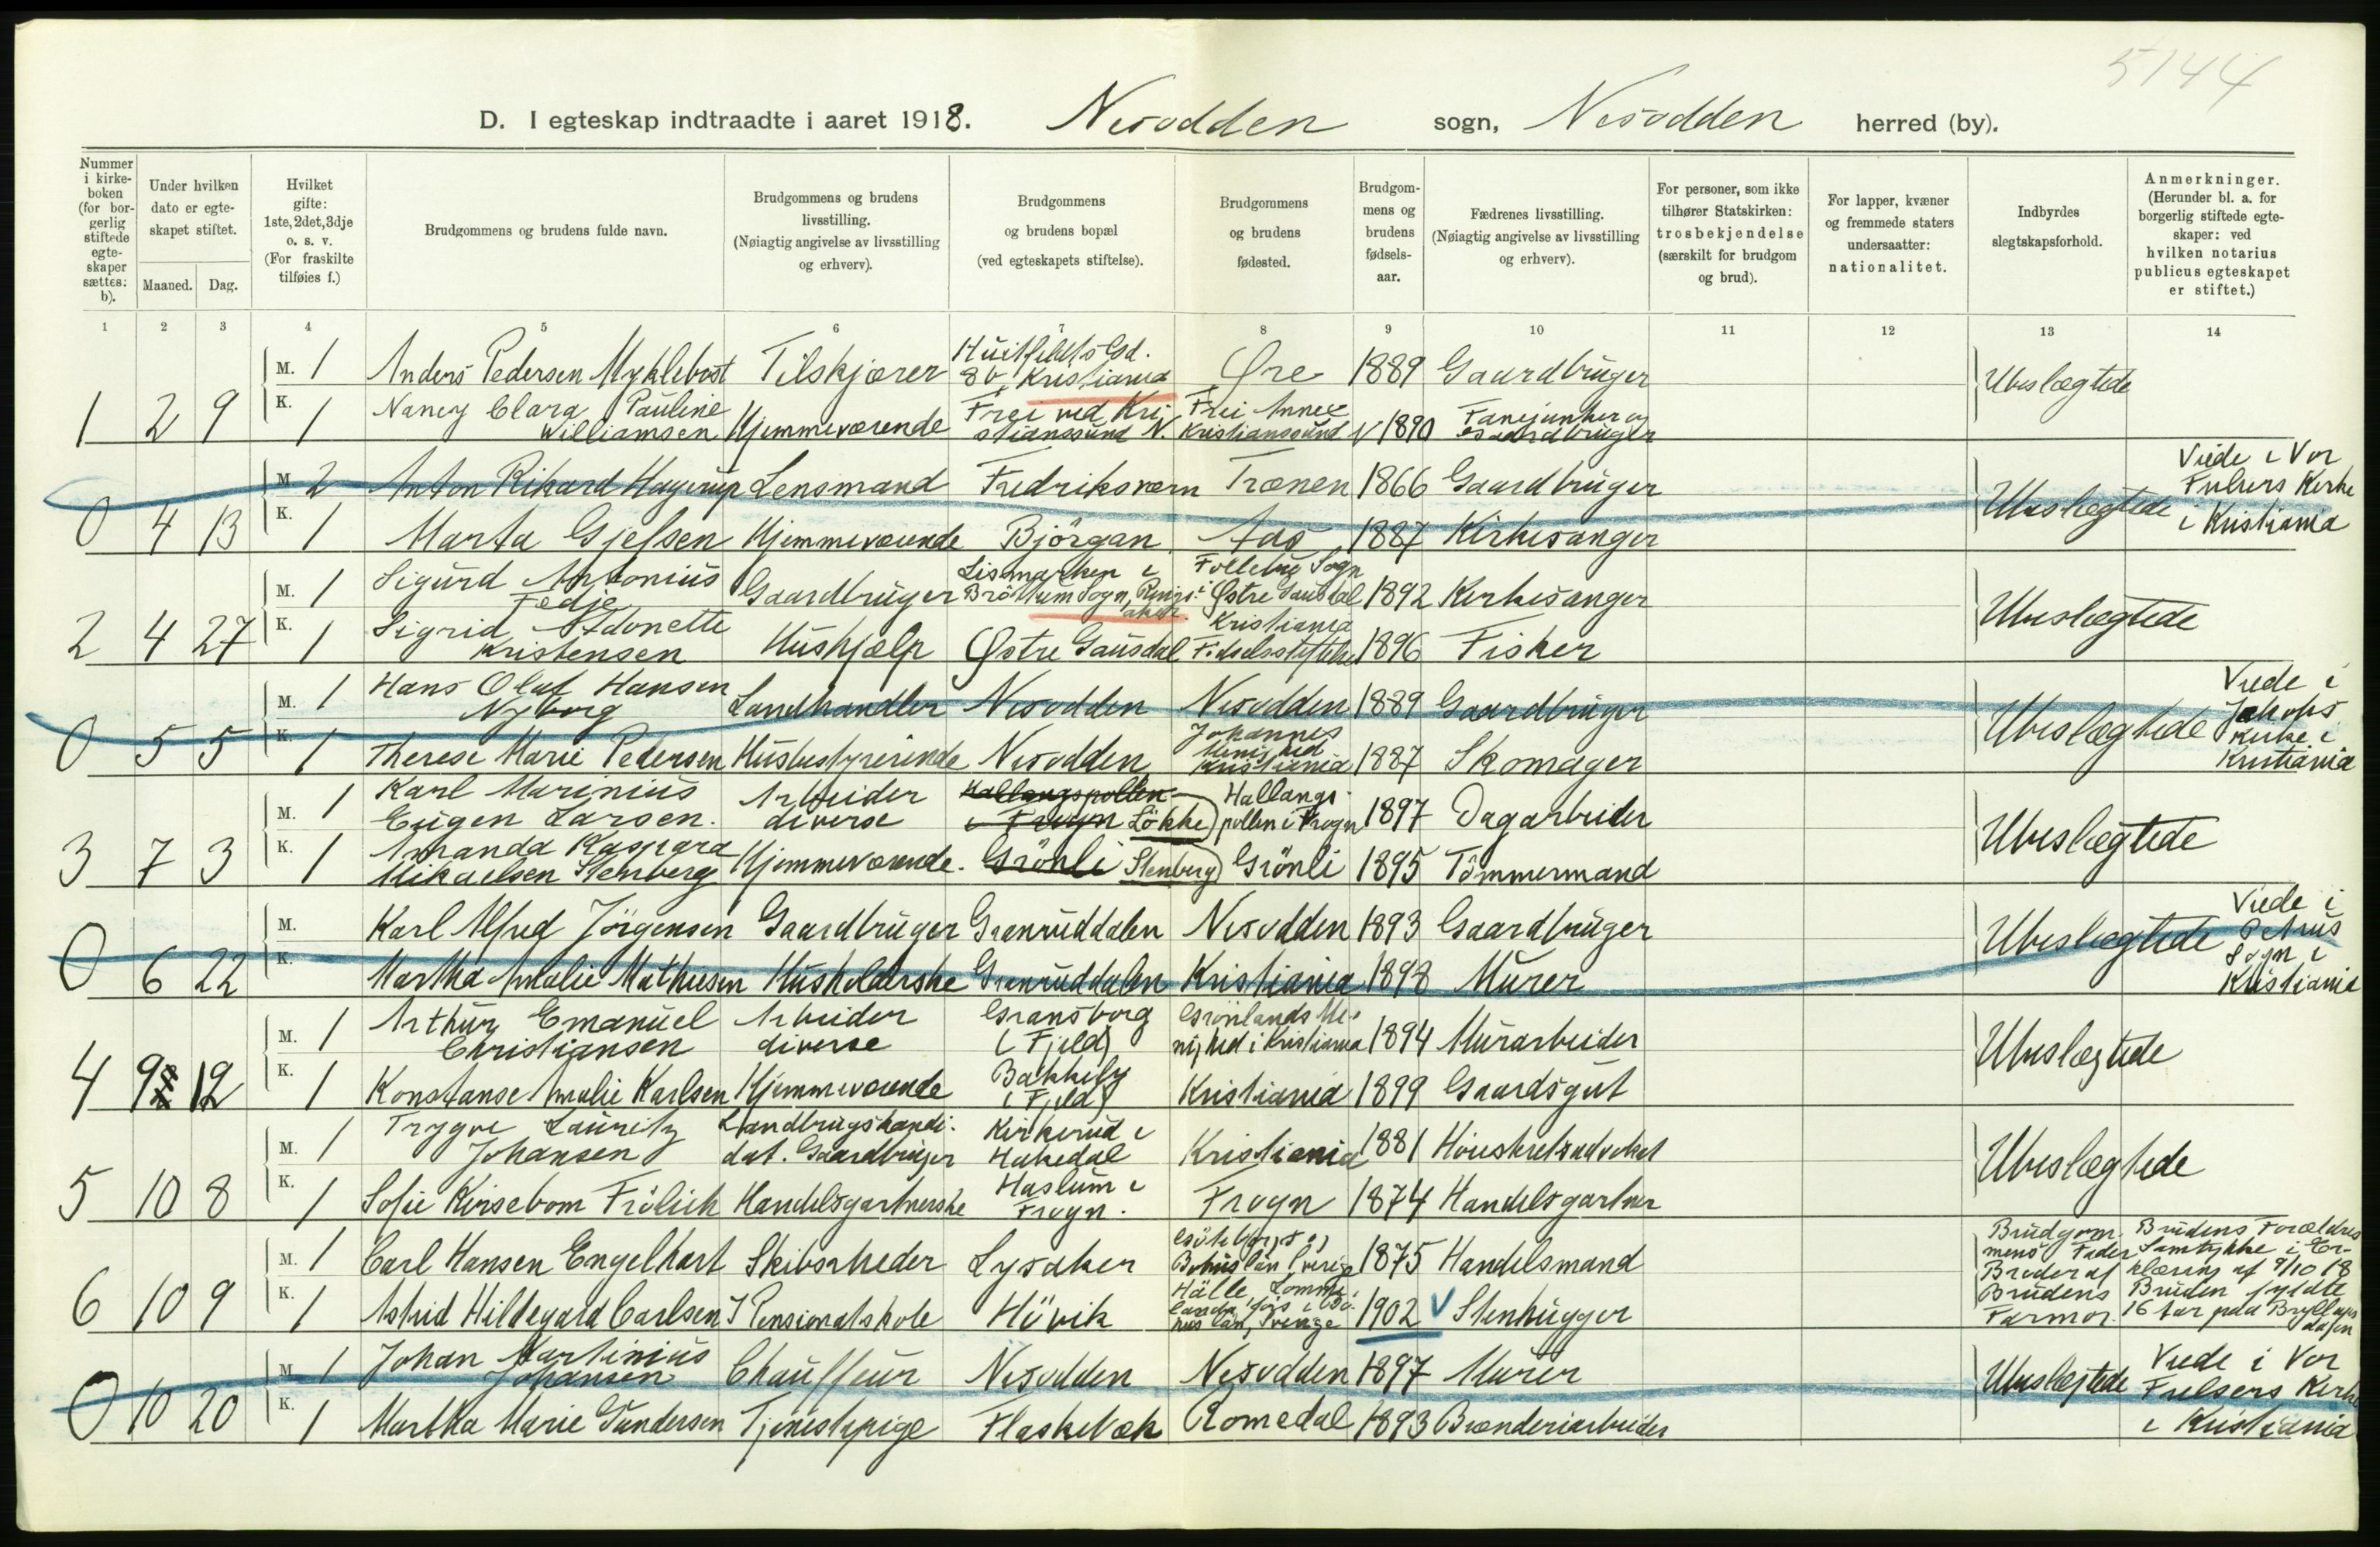 5144
D. I egteskap indtraadte i aaret 1918. Nesodden sogn, Nesodden herred (by).
Nummer i kirke-boken (for bor-gerlig stiftede egte-skaper sættes: b).
Under hvilken dato er egte-skapet stiftet.
Maaned. Dag.
Hvilket gifte: 1ste, 2det, 3dje o. s. v. (For fraskilte tilføies f.)
Brudgommens og brudens fulde navn.
Brudgommens og brudens livsstilling. (Nøiagtig angivelse av livsstilling og erhverv).
Brudgommens og brudens bopæl (ved egteskapets stiftelse).
Brudgommens og brudens fødested.
Brudgom-mens og brudens fødsels-aar.
Fædrenes livsstilling. (Nøiagtig angivelse av livsstilling og erhverv).
For personer, som ikke tilhører Statskirken: trosbekjendelse (særskilt for brudgom og brud).
For lapper, kvæner og fremmede staters undersaatter: nationalitet.
Indbyrdes slegtskapsforhold.
Anmerkninger. (Herunder bl. a. for borgerlig stiftede egte-skaper: ved hvilken notarius publicus egteskapet er stiftet.)
1 2 3 4 5 6 7 8 9 10 11 12 13 14
M. 1 Anders Pedersen Myklebost Tilskjærer Huitfeldts Gd. 8 b, Kristiania Øre 1889 Gaardbruger Ubeslægtede
1 2 9 K. 1 Nancy Clara Pauline Williamsen Hjemmeværende Frei ved Kri-stianssund N. Frei Annex Kristianssund N 1890 Fanejunker og Gaardbruger
M. 2 Anton Rikard Hagerup Lensmand Fredriksværn Trænen 1866 Gaardbruger Ubeslægtede Viede i Vor Frelsers Kirke i Kristiania
0 4 13 K. 1 Marta Gjelsen Hjemmeværende Bjørgan Aas 1887 Kirkesanger
M. 1 Sigurd Antonius Fedje Gaardbruger Lismarken i Brøttum Sogn, Ringsaker. Follebu Sogn i Østre Gausdal 1892 Kirkesanger Ubeslægtede
2 4 27 K. 1 Sigrid Adonette Kristensen Hushjælp Østre Gausdal Kristiania Fødselsstiftelse 1896 Fisker
M. 1 Hans Olaf Hansen Nyborg Landhandler Nesodden Nesodden 1889 Gaardbruger Ubeslægtede Viede i Jakobs Kirke i Kristiania
0 5 5 K. 1 Therese Marie Pedersen Husbestyrerinde Nesodden Johannes Menighed Kristiania 1887 Skomager
M. 1 Karl Marinius Eugen Larsen. Arbeider diverse Hallangspollen i Frogn Løkke Hallangs-pollen i Frogn 1897 Dagarbeider Ubeslægtede
3 7 3 K. 1 Amanda Kaspara Mikaelsen Stenberg Hjemmeværende. Grönli Stenberg Grönli 1895 Tömmermand
M. Karl Alfred Jörgensen Gaardbruger Granruddalen Nesodden 1893 Gaardbruger Ubeslægtede Viede i Petrus Sogn i Kristiania
0 6 22 K. Martha Amalie Mathiesen Husholderske Granruddalen Kristiania 1898 Murer
M. 1 Arthur Emanuel Christiansen Arbeider diverse Gransborg (Fjeld) Grönlands Me-nighed i Kristiania 1894 Murarbeider Ubeslægtede
4 9 12 K. 1 Konstanse Amalie Karlsen Hjemmeværende Bakkeby (Fjeld) Kristiania 1899 Gaardsgut
M. 1 Trygve Lauritz Johansen Landbrugskandi-dat. Gaardbruger Kirkerud i Hakedal Kristiania 1881 Høiesteretsadvokat Ubeslægtede
5 10 8 K. 1 Sofie Kirsebom Frölich Handelsgartnerske Haslum i Frogn. Frogn 1874 Handelsgartner
M. 1 Carl Hansen Engelhart Skibsreder Lysaker Göteborgs og Bohuslän Sverige 1875 Handelsmand Brudgom-mens Fader Broder af Brudens Farmor. Brudens Forældres Samtykke i Er-klæring af 9/10 18 Bruden fyldte 16 Aar paa Bryllups dagen
6 10 9 K. 1 Astrid Hildegard Carlsen I Pensionatskole Hövik Hälle, i Bo-hus län, Sverige 1902 V Stenhugger
M. 1 Johan Martinius Johansen Chauffeur Nesodden Nesodden 1897 Murer Ubeslegtede Viede i Vor Frelsers Kirke i Kristiania
0 10 20 K. 1 Martha Marie Gundersen Tjenestepige Flaskebæk Romedal 1893 Brænderiarbeider